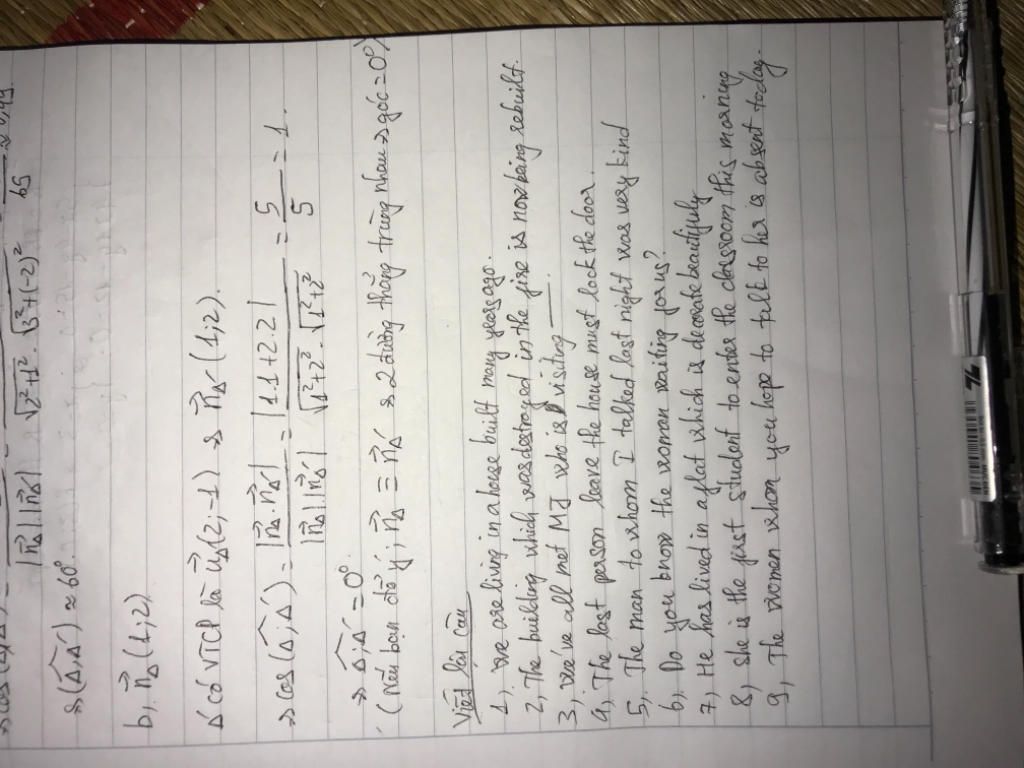 |n⃗Δ|.|n⃗Δ'| √2²+1² . √3²+(-2)² 65
⇒ (Δ,Δ') ≈ 60°.
b, n⃗Δ (1;2)
Δ' có VTCP là u⃗Δ'(2;-1) ⇒ n⃗Δ' (1;2).
⇒ cos(Δ,Δ') = |n⃗Δ.n⃗Δ'| / |n⃗Δ|.|n⃗Δ'| = |1.1+2.2| / √1²+2² . √1²+2² = 5/5 = 1.
⇒ Δ,Δ' = 0°
(Nếu bạn để ý, n⃗Δ ≡ n⃗Δ' ⇒ 2 đường thẳng trùng nhau ⇒ góc = 0°)
Viết lại câu
1, We are living in a house built many years ago.
2, The building which was destroyed in the fire is now being rebuilt.
3, we've all met MJ who is visiting
4, The last person leave the house must lock the door.
5, The man to whom I talked last night was very kind
6, Do you know the woman waiting for us?
7, He has lived in a flat which is decorate beautifuly
8, she is the first student to enter the classoom this morning
9, The women whom you hope to talk to her is absent today.